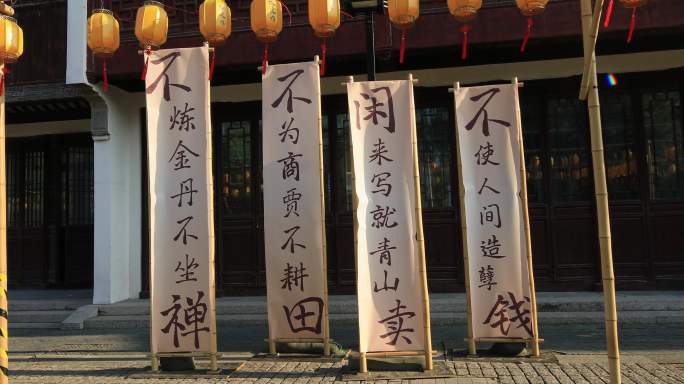 不炼金丹不坐禅
不为商贾不耕田
闲来写就青山卖
不使人间造孽钱